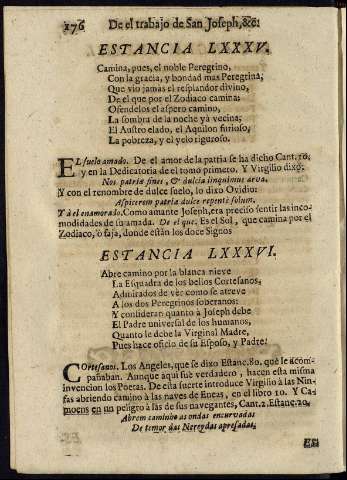 176 De el trabajo de San Joseph, &c:
ESTANCIA LXXXV.
Camina, pues, el noble Peregrino,
Con la gracia, y bondad mas Peregrina;
Que vio jamas el resplandor divino,
De el que por el Zodiaco camina:
Ofendelos el aspero camino,
La sombra de la noche yà vecina;
El Austro elado, el Aquilon furioso,
La pobreza, y el yelo riguroso.
EL suelo amado. De el amor de la patria se ha dicho Cant. 10,
y en la Dedicatoria de el tomo primero. Y Virgilio dixo:
Nos patriæ fines, & dulcia linquimus arva.
Y con el renombre de dulce suelo, lo dixo Ovidio:
Aspicerem patriæ dulce repentè solum.
Y à el enamorado. Como amante Joseph, era preciso sentir las inco-
modidades de su amada. De el que. Es el Sol, que camina por el
Zodiaco, ò faja, donde estàn los doce Signos
ESTANCIA LXXXVI.
Abre camino por la blanca nieve
La Esquadra de los bellos Cortesanos,
Admirados de ver como se atreve
A los dos Peregrinos soberanos:
Y consideran quanto à Joseph debe
El Padre universal de los humanos,
Quanto le debe la Virginal Madre,
Pues hace oficio de su Esposo, y Padre.
Cortesanos. Los Angeles, que se dixo Estanc. 80. que le acom-
pañaban. Aunque aqui fuè verdadero, hacen esta misma
invencion los Poetas. De esta suerte introduce Virgilio à las Nin-
fas abriendo camino à las naves de Eneas, en el libro 10. Y Ca-
moens en un peligro à las de sus navegantes, Cant. 2. Estanc. 20.
Abrem caminho as ondas encurvadas
De temor das Nereydas apresadas.
ES-